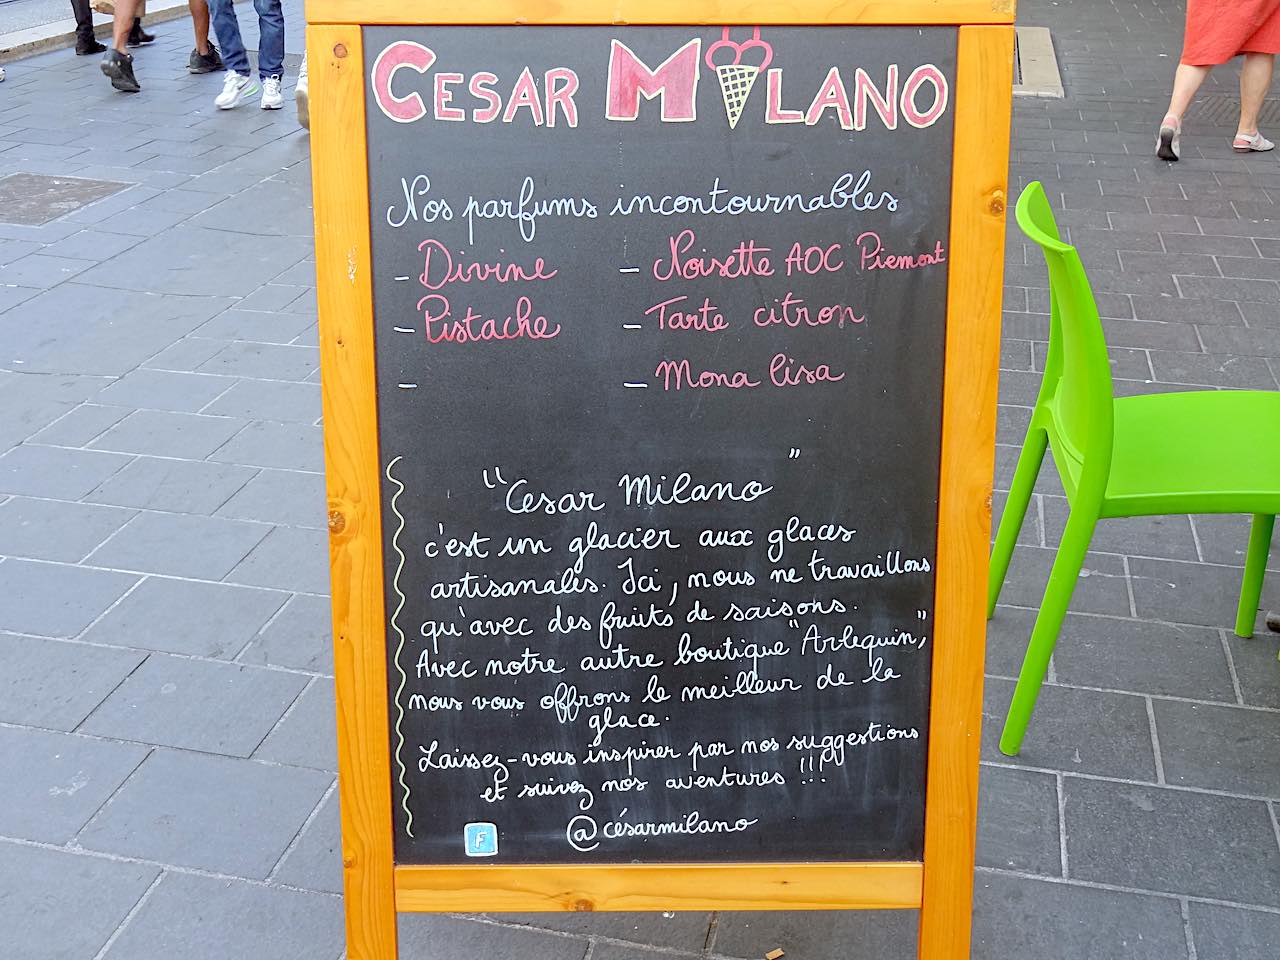 CESAR MILANO
Nos parfums incontournables
- Divine
- Pistache
-
- Noisette AOC Piemont
- Tarte citron
- Mona lisa
"Cesar Milano"
c'est un glacier aux glaces
artisanales. Ici, nous ne travaillons
qu'avec des fruits de saisons.
Avec notre autre boutique "Arlequin",
nous vous offrons le meilleur de la
glace.
Laissez-vous inspirer par nos suggestions
et suivez nos aventures !!!
F @césarmilano